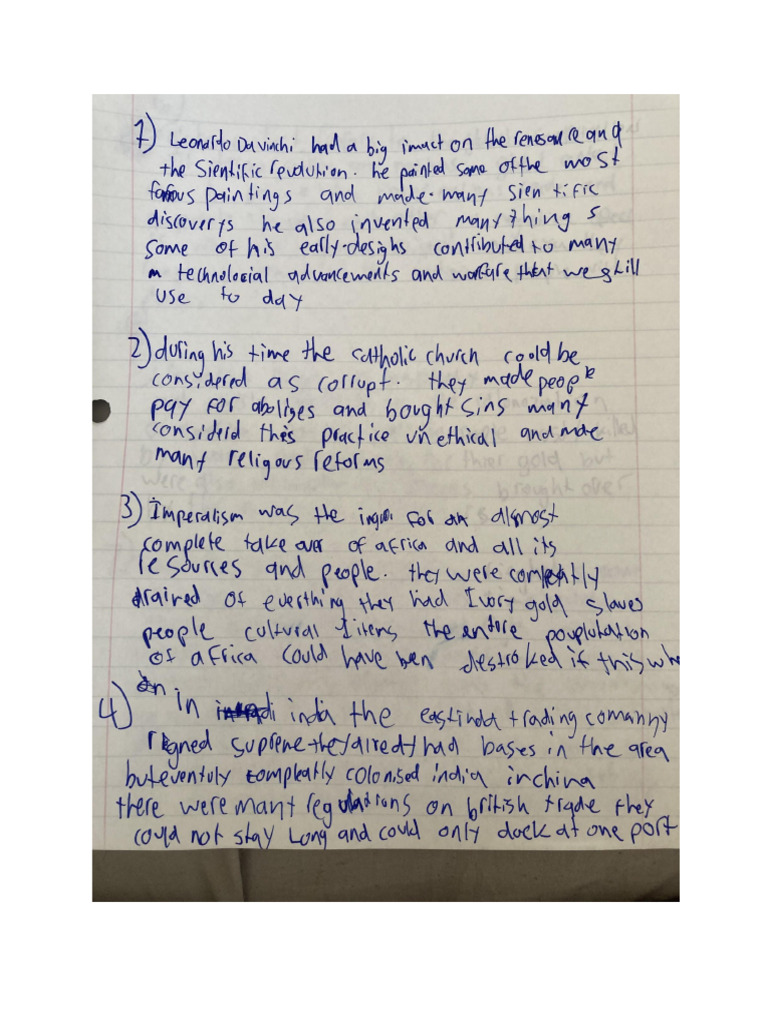 1) Leonardo Davinchi had a big imact on the renesaure and
the Sientific revolution. he painted some of the most
famous paintings and made many sientific
discoverys he also invented many things
some of his early designs contributed to many
technological advancements and warfare that we still
use to day
2) during his time the catholic church could be
considered as corrupt. they made people
pay for abolizes and bought sins many
considerd this practice unethical and made
many religous reforms
3) Imperalism was the for an almost
complete take over of africa and all its
resources and people. they were compleatly
drained of everthing they had Ivory gold slaves
people cultural items the entire pouplutation
of africa could have ben destroked if this
4) in india the eastinda trading comanny
reigned supreme they alredy had bases in the area
but eventuly compleatly colonised india in china
there were mant regulations on british trade they
could not stay long and could only dock at one port